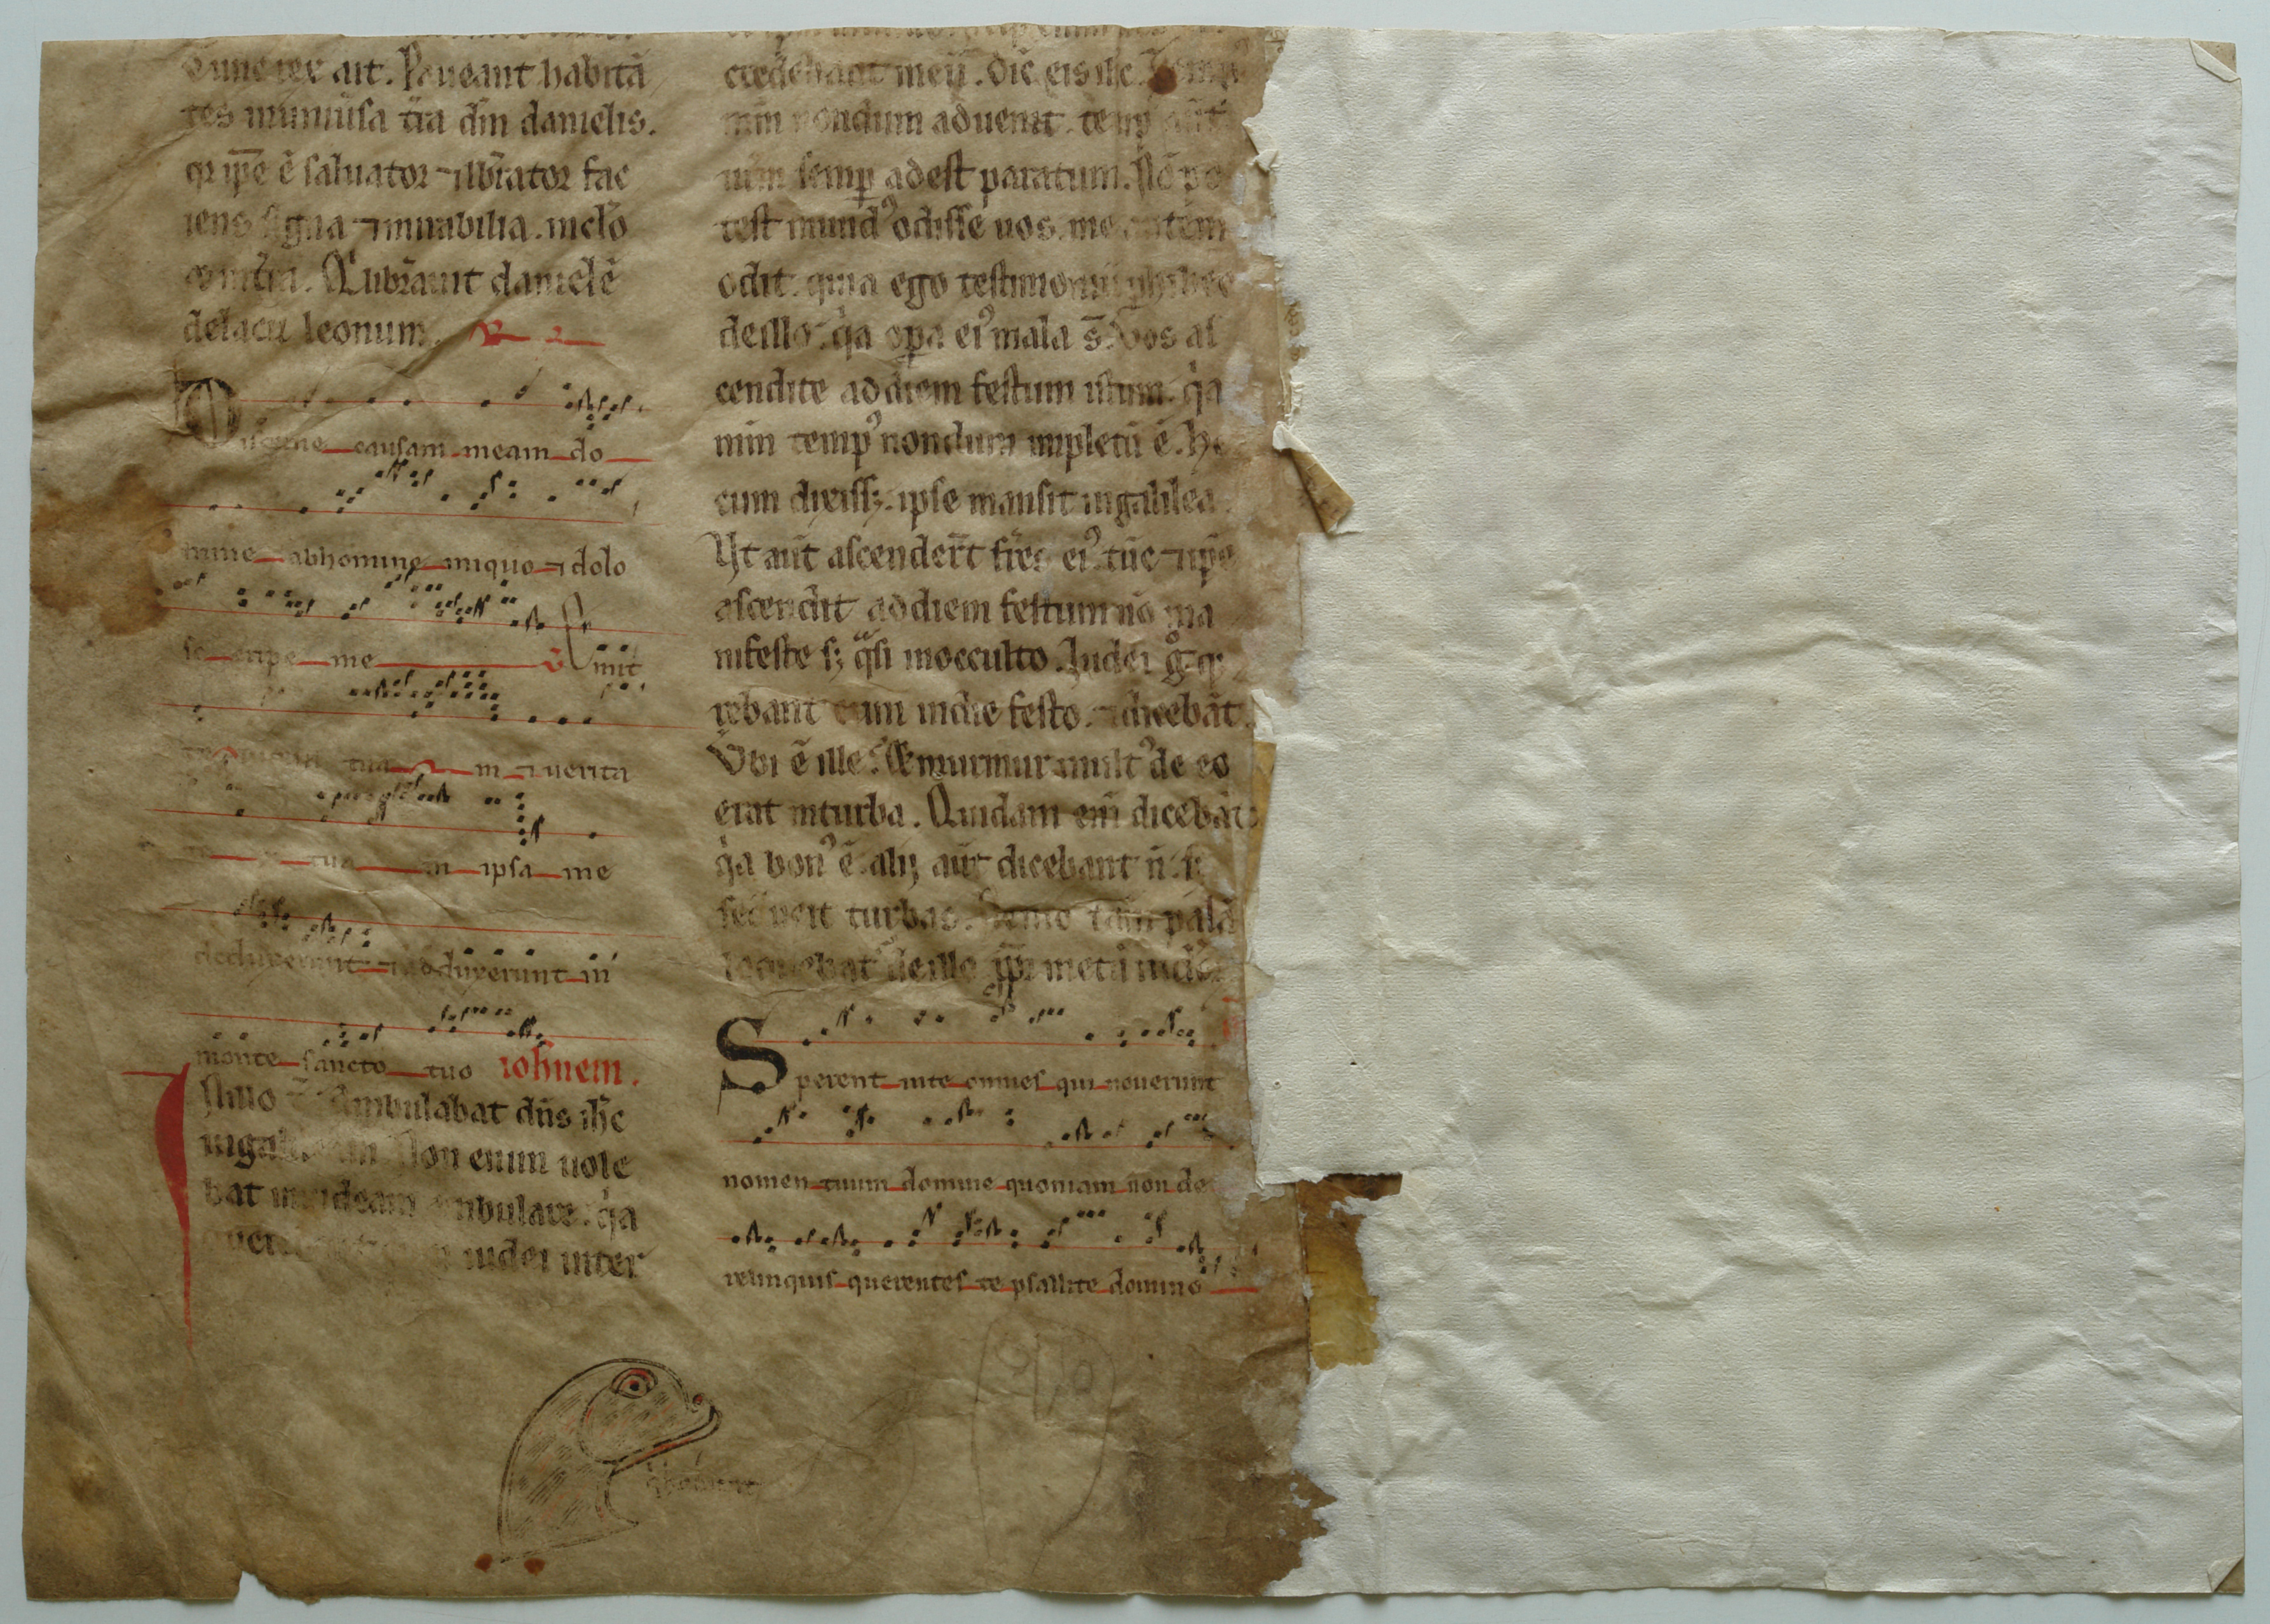 Tunc rex ait. Paueant habitā
tes inuniūsa t̄ra dm̄ danielis.
qr ip̄e ē saluator ⁊ lib̄rator fac
iens signa ⁊ mirabilia. in celo
⁊ in t̄ra. Q̇ lib̄rauit danielē
de lacu leonum.
Discerne causam meam do
mine ab homine iniquo ⁊ dolo
so eripe me v̄ Emit
te lucem tuam ⁊ uerita
te tuā ipsa me
deduxerunt ⁊ adduxerunt in
monte sancto tuo ioh̄nem.
In illo t̄ Ambulabat dn̄s ih̄c
in galileam Non enim uole
bat in iudeam ambulare. q̇a
iudei inter
credebant in eū. Dic̄ eis ih̄c. Temp
mm̄ nondum aduenit. temp aūt
ur̄m semp adest paratum. Nō po
test mundꝰ odisse uos. me autem
odit. quia ego testimoniū ꝑhibeo
de illo. q̇a opa eiꝰ mala s̄. Vos as
cendite ad diem festum istum. q̇a
mm̄ tempꝰ nondum impletū ē. He
cum dixissꝫ. ipse mansit in galilea.
Vt aūt ascender̄t fr̄es eiꝰ. tūc ⁊ ip̄e
ascendit ad diem festum nō ma
nifeste sꝫ q̇si in occulto. Iudei g̊ q̄
rebant eum in die festo. ⁊ dicebāt.
Vbi ē ille. Et murmur multꝰ de eo
erat in turba. Quidam em̄ dicebāt
q̇a bonꝰ ē. alij aūt dicebant n̄. sꝫ
seducit turbas. Nemo tam̄ palā
loquebat᷑ de illo pp̄t metū iudeoꝝ
Sperent in te omnes qui nouerunt
nomen tuum domine quoniam non de
relinquis querentes te psallite domino